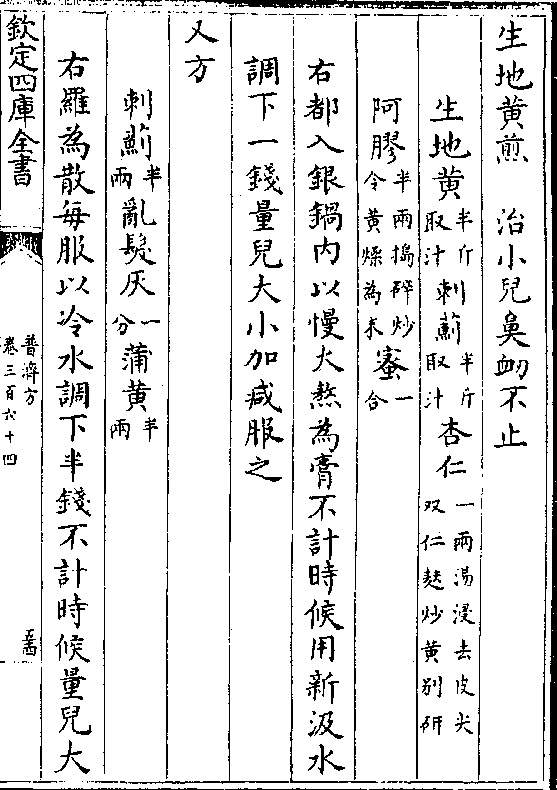 生地黄煎　治小兒鼻衄不止
生地黄半斤取汁刺薊半斤取汁杏仁一兩湯浸去皮尖双仁麸炒黄别研
阿膠半兩搗碎炒令黄燥為末蜜一合
右都入銀鍋内以慢火熬為膏不計時候用新汲水
調下一錢量兒大小加减服之
又方
刺薊半兩亂髮灰一分蒲黄半兩
右羅為散每服以冷水調下半錢不計時候量兒大
欽定四庫全書
普濟方
卷三百六十四